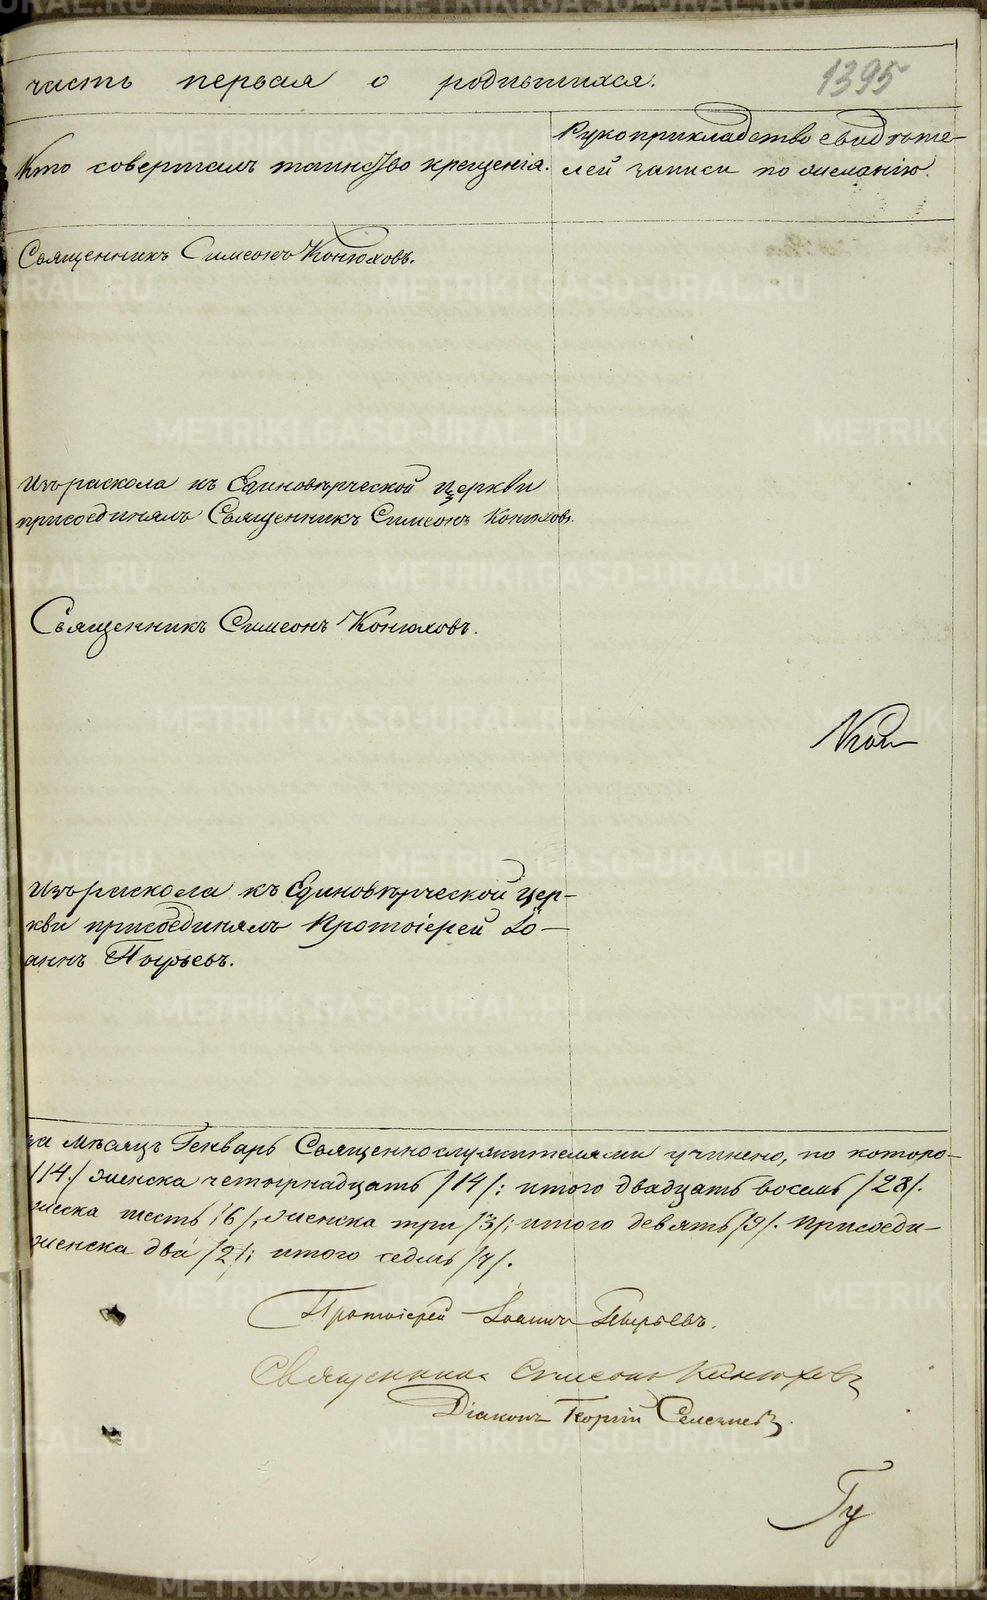 часть первая о родившихся.
1395
Кто совершалъ таинство крещенія.
Рукоприкладство свидѣте-
лей записи по желанію.
Священникъ Симеонъ Конюховъ.
Изъ раскола къ Единовѣрческой церкви
присоединялъ Священникъ Симеонъ Конюховъ.
Священникъ Симеонъ Конюховъ.
Изъ раскола къ Единовѣрческой цер-
кви присоединялъ Протоіерей Іо-
аннъ Пырьевъ.
за мѣсяцъ Генварь Священнослужителями учинено, по которо-
/14/ женска четырнадцать /14/; итого двадцать восемь /28/.
жеска шесть /6/, женска три /3/; итого девять /9/. Присоеди-
женска два /2/; итого седмь /7/.
Протоіерей Іоаннъ Пырьевъ.
Священникъ Симеонъ Конюховъ
Діаконъ Георгій
METRIKI.GASO-URAL.RU